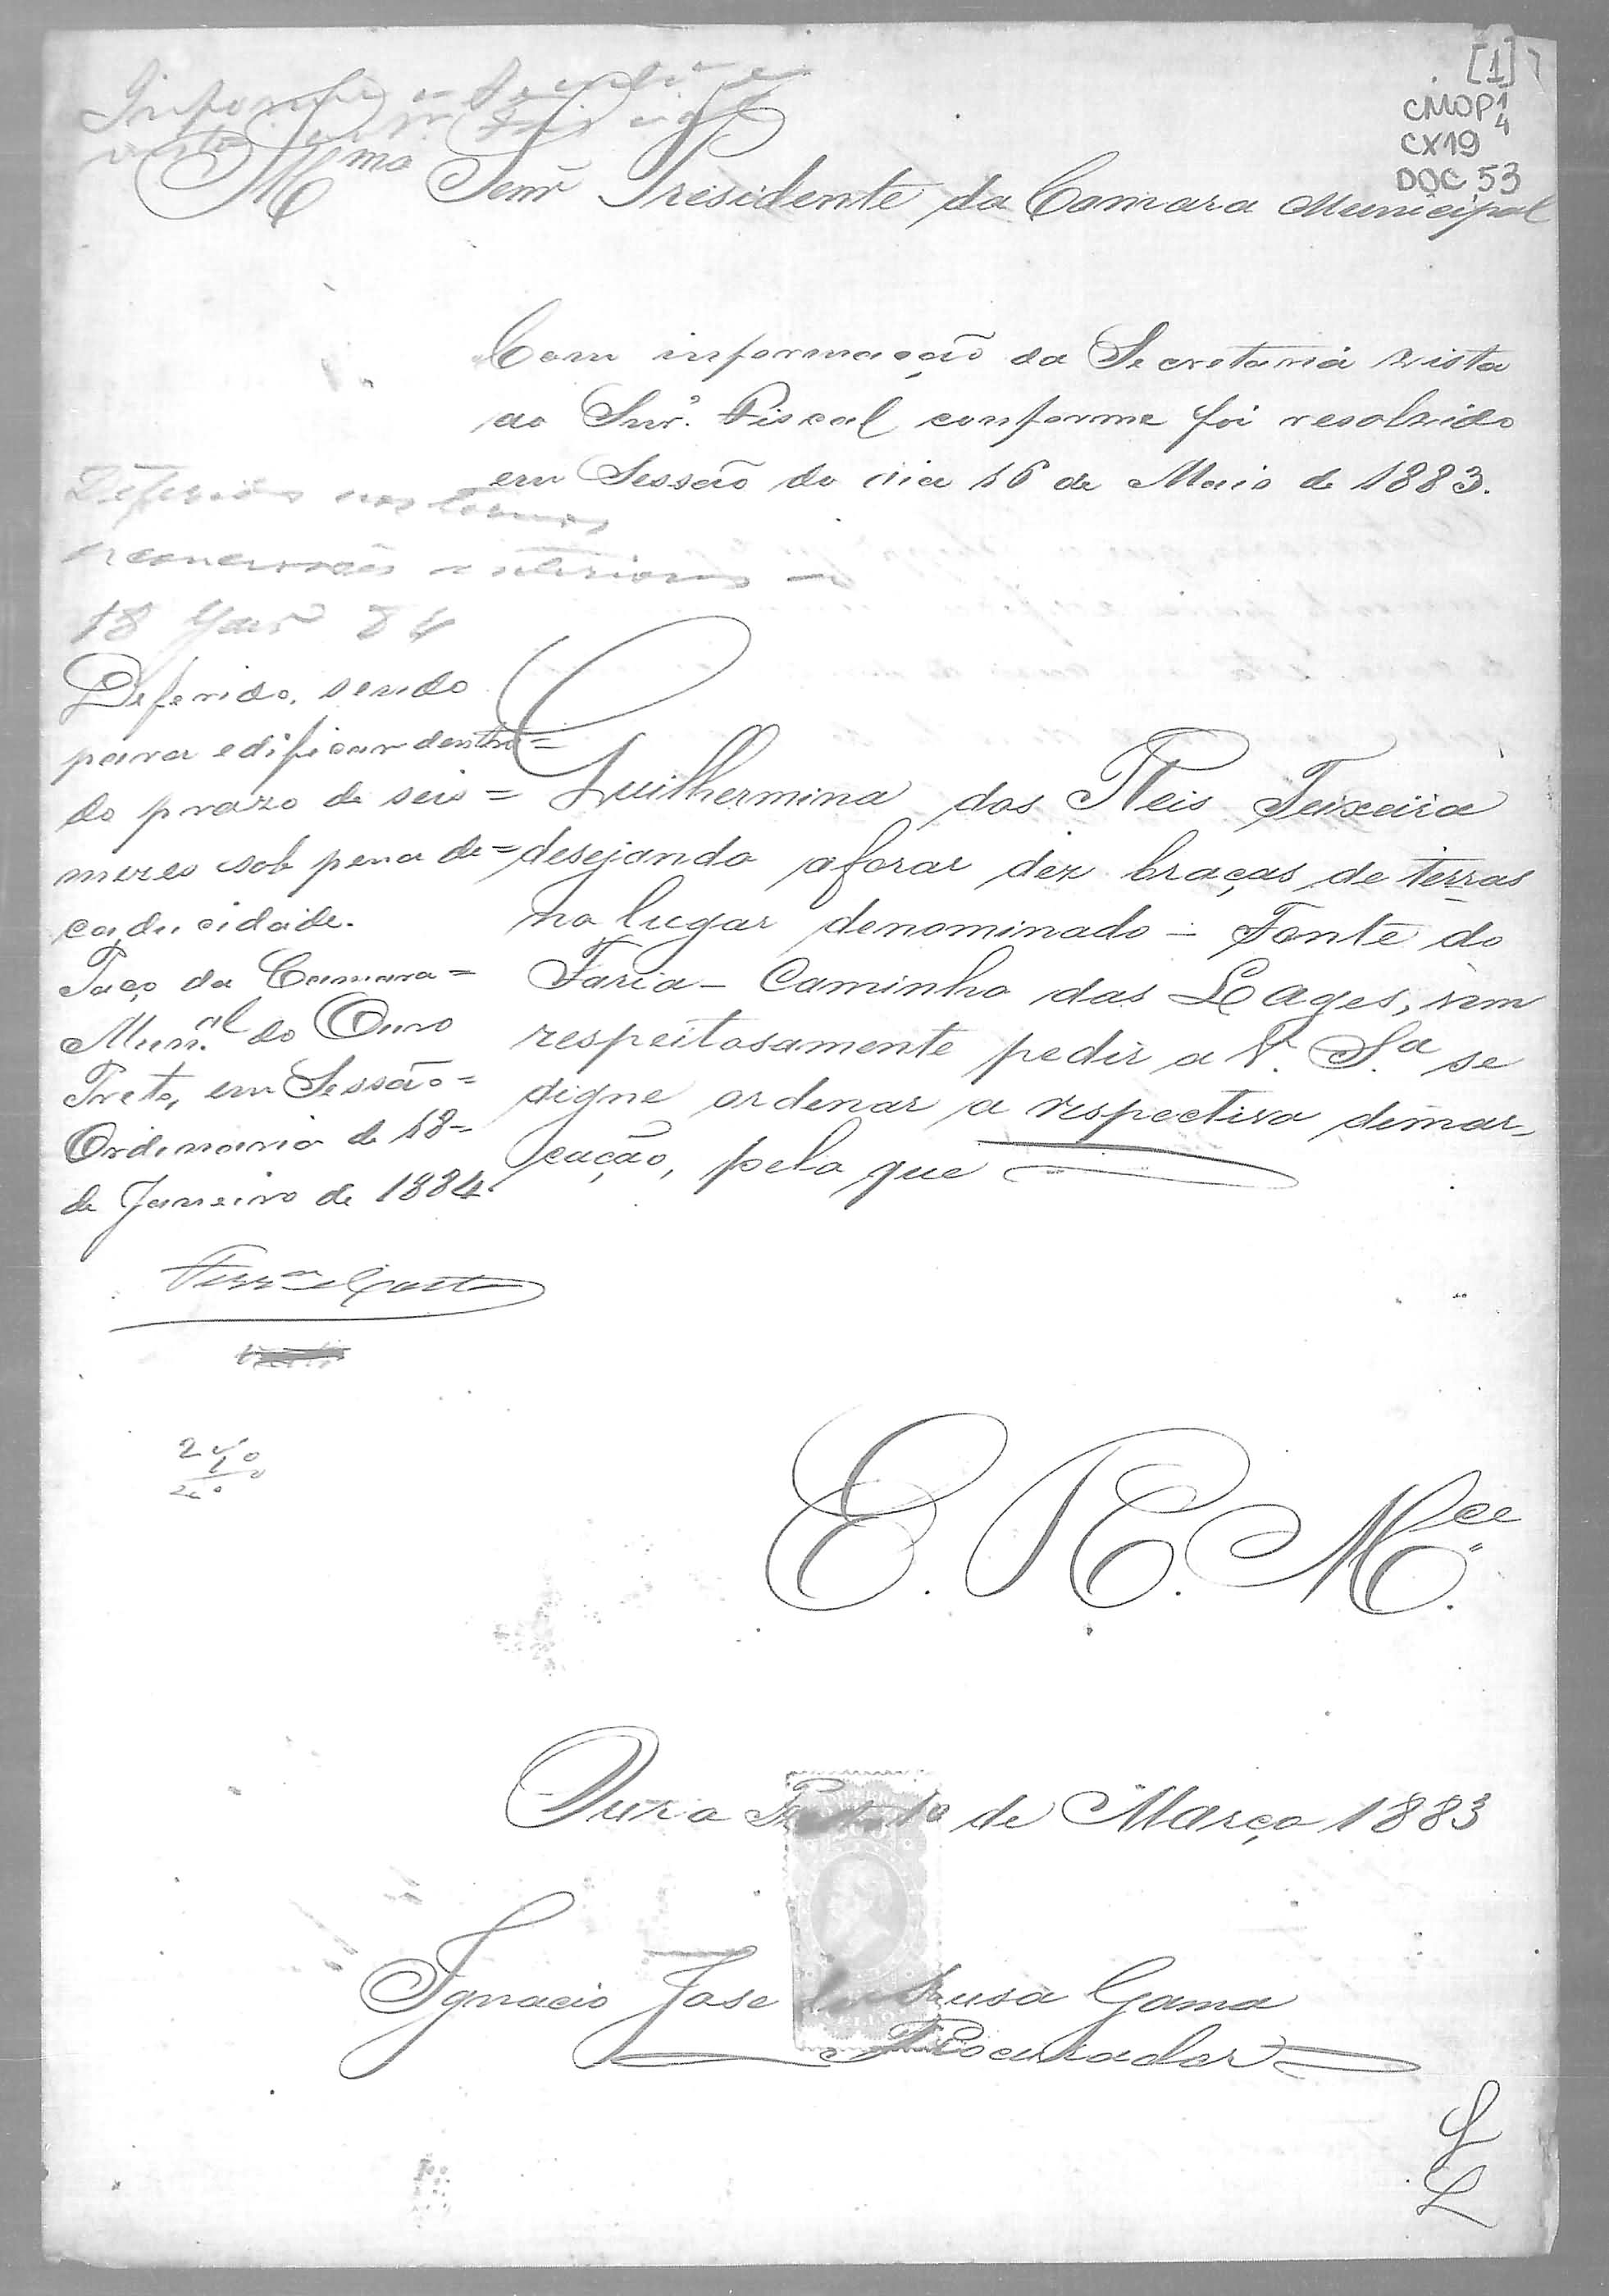 [1]
CMOP1
4
CX19
DOC 53
Informe a Secretaria e
vista ao Sr. Fiscal
Illmo Senr Presidente da Camara Municipal
Com informação da Secretaria vista
ao Snr. Fiscal conforme foi resolvido
em Sessão do dia 16 de Maio de 1883.
Deferido nos termos
18 Janr 84
Deferido, sendo
para edificar dentro=
do prazo de seis=
mezes sob pena de=
caducidade.
Paço da Camara=
Mun.al do Ouro
Preto, em Sessão=
Ordinaria de 18=
de Janeiro de 1884.
Guilhermina dos Reis Teixeira
desejando aforar dez braças de terras
no lugar denominado - Fonte do
Faria - Caminho das Lages, vem
respeitosamente pedir a V. S.a se
digne ordenar a respectiva demar-
cação, pelo que
E. R. M.ce
Ouro Preto 10 de Março 1883
Ignacio Jose de Sousa Gama
Procurador